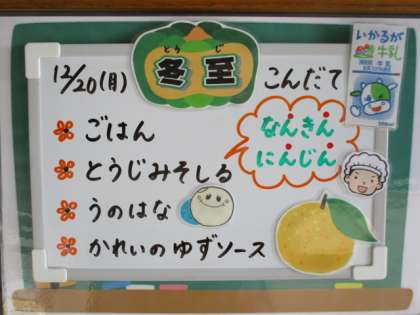 いかるが
牛乳
とうじ
12/20(月) 冬至 こんだて
ごはん
とうじみそしる
うのはな
かれいのゆずソース
なんきん
にんじん